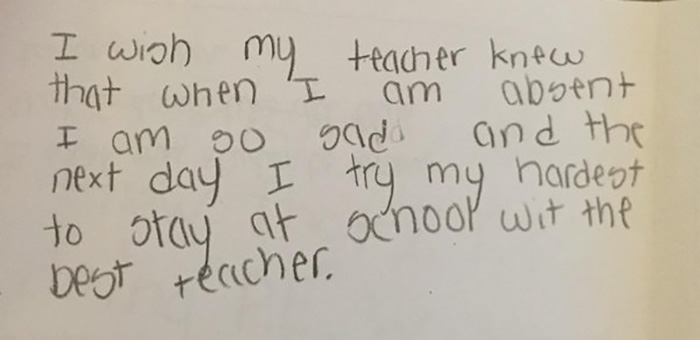 I wish my teacher knew
that when I am absent
I am so sad and the
next day I try my hardest
to stay at school wit the
best teacher.